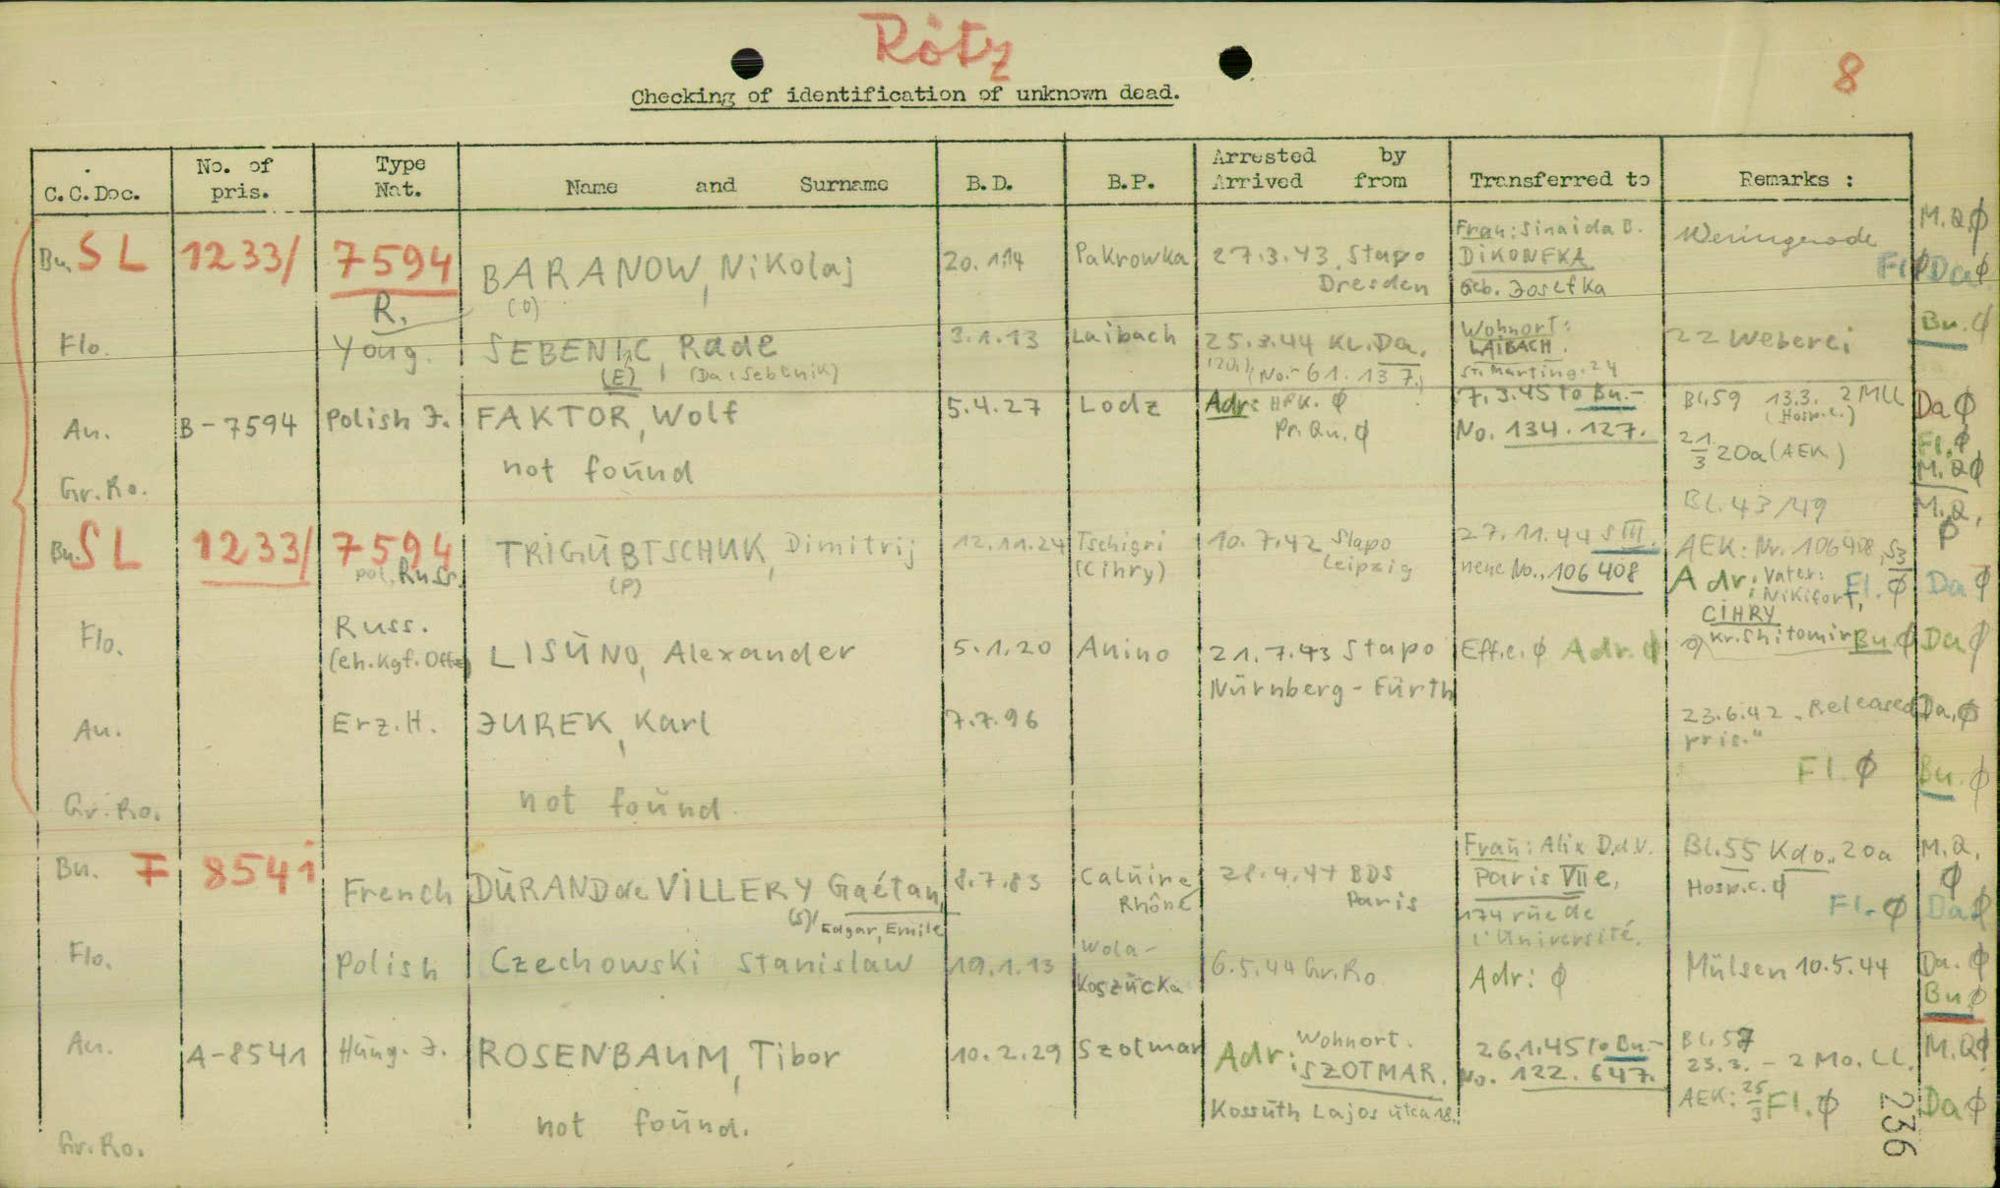 Rötz
8
Checking of identification of unknown dead.
C.C.Doc. No. of pris. Type Nat. Name and Surname B.D. B.P. Arrested by Arrived from Transferred to Remarks :
M.Q.ϕ
Bu. SL 1233/ 7594 BARANOW, Nikolaj 20.1.14 Pakrowka 27.3.43 Stapo Frau: Sinaida B. Weringerode
R. (O) Dresden DIKONEKA Fl.ϕ Daϕ
Geb. Josefka
Flo. Youg. SEBENIC, Rade 3.1.13 Laibach 25.3.44 KL.Da. Wohnort: 22 Weberei Bu.ϕ
(E) (Da: Sebenik) (No.- 61.137.) LAIBACH.
St. Marting. 24
Au. B-7594 Polish J. FAKTOR, Wolf 5.4.27 Lodz Adr: HPK. ϕ 7.3.45 to Bu.- Bl.59 13.3. 2 MLL Daϕ
Pr.Qu. ϕ No. 134.127. (Hosp.c.) Fl.ϕ
not found 21/3 20a (AEK) M.Qϕ
Gr.Ro. Bl.43/49 M.Q.
ϕ
Bu. SL 1233/ 7594 TRIGUBTSCHUK, Dimitrij 12.11.24 Tschigri 10.7.42 Stapo 27.11.44 S III. AEK: Nr. 106408, S3
pol. Russ. (P) (Cihry) Leipzig neue No., 106408 Adr: Vater: Fl.ϕ Daϕ
Nikifort,
CIHRY
Kr. Shitomir Buϕ Daϕ
Flo. Russ. LISUNO, Alexander 5.1.20 Anino 21.7.43 Stapo Eff.c. ϕ Adr. ϕ
(eh.Kgf.Offz) Nürnberg - Fürth
Au. Erz.H. JUREK, Karl 7.7.96 23.6.42 „Released Da,ϕ
pris."
Fl.ϕ Bu.ϕ
Gr.Ro. not found.
Bu. F 8541 French DURAND de VILLERY Gaétan, 8.7.83 Caluire 28.4.44 BDS Frau: Alix D.d.V. Bl.55 Kdo., 20a M.Q.
(S) Edgar, Emile Rhône Paris Paris VII e, Hosp.c. ϕ ϕ
174 rue de Fl.ϕ Daϕ
l'Université.
Flo. Polish Czechowski Stanislaw 19.1.13 Wola- 6.5.44 Gr.Ro Adr: ϕ Mülsen 10.5.44 Da.ϕ
Koszucka Buϕ
Au. A-8541 Hung. J. ROSENBAUM, Tibor 10.2.29 Szolmar Adr: Wohnort. 26.1.45 to Bu.- Bl.57 M.Qϕ
SZOTMAR. No. 122.647. 23.3. - 2 Mo. LL.
Kossuth Lajos utca 18. AEK: 25/3 Fl.ϕ Daϕ
not found.
Gr.Ro.
236